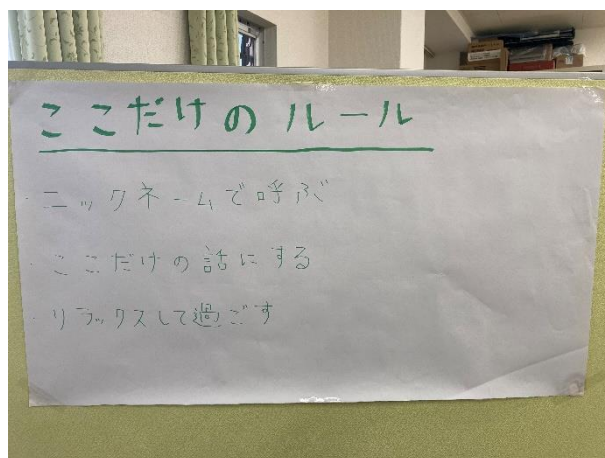 ここだけのルール
・ニックネームで呼ぶ
・ここだけの話にする
・リラックスして過ごす